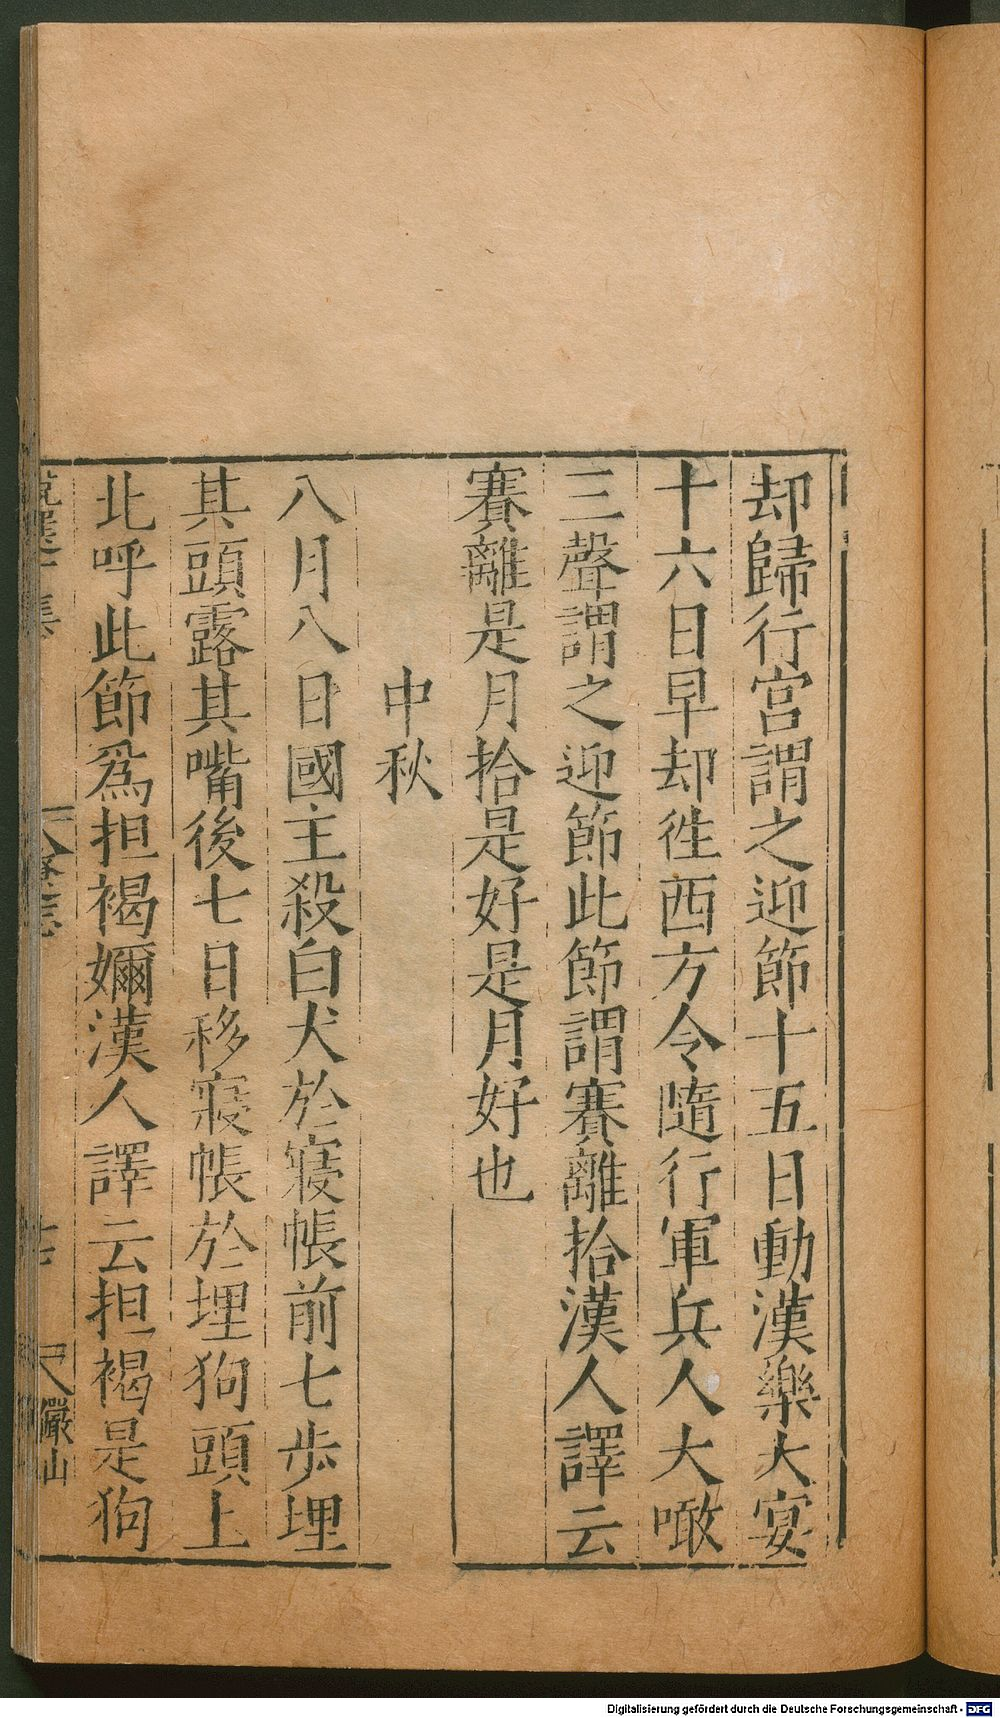 却歸行宮謂之迎節十五日動漢樂大宴
十六日早却徃西方令隨行軍兵人大噉
三聲謂之迎節此節謂賽離拾漢人譯云
賽離是月拾是好是月好也
中秋
八月八日國主殺白犬於寢帳前七步埋
其頭露其嘴後七日移寢帳於埋狗頭上
北呼此節爲担褐嬭漢人譯云担褐是狗
儼山
Digitalisierung gefördert durch die Deutsche Forschungsgemeinschaft - DFG